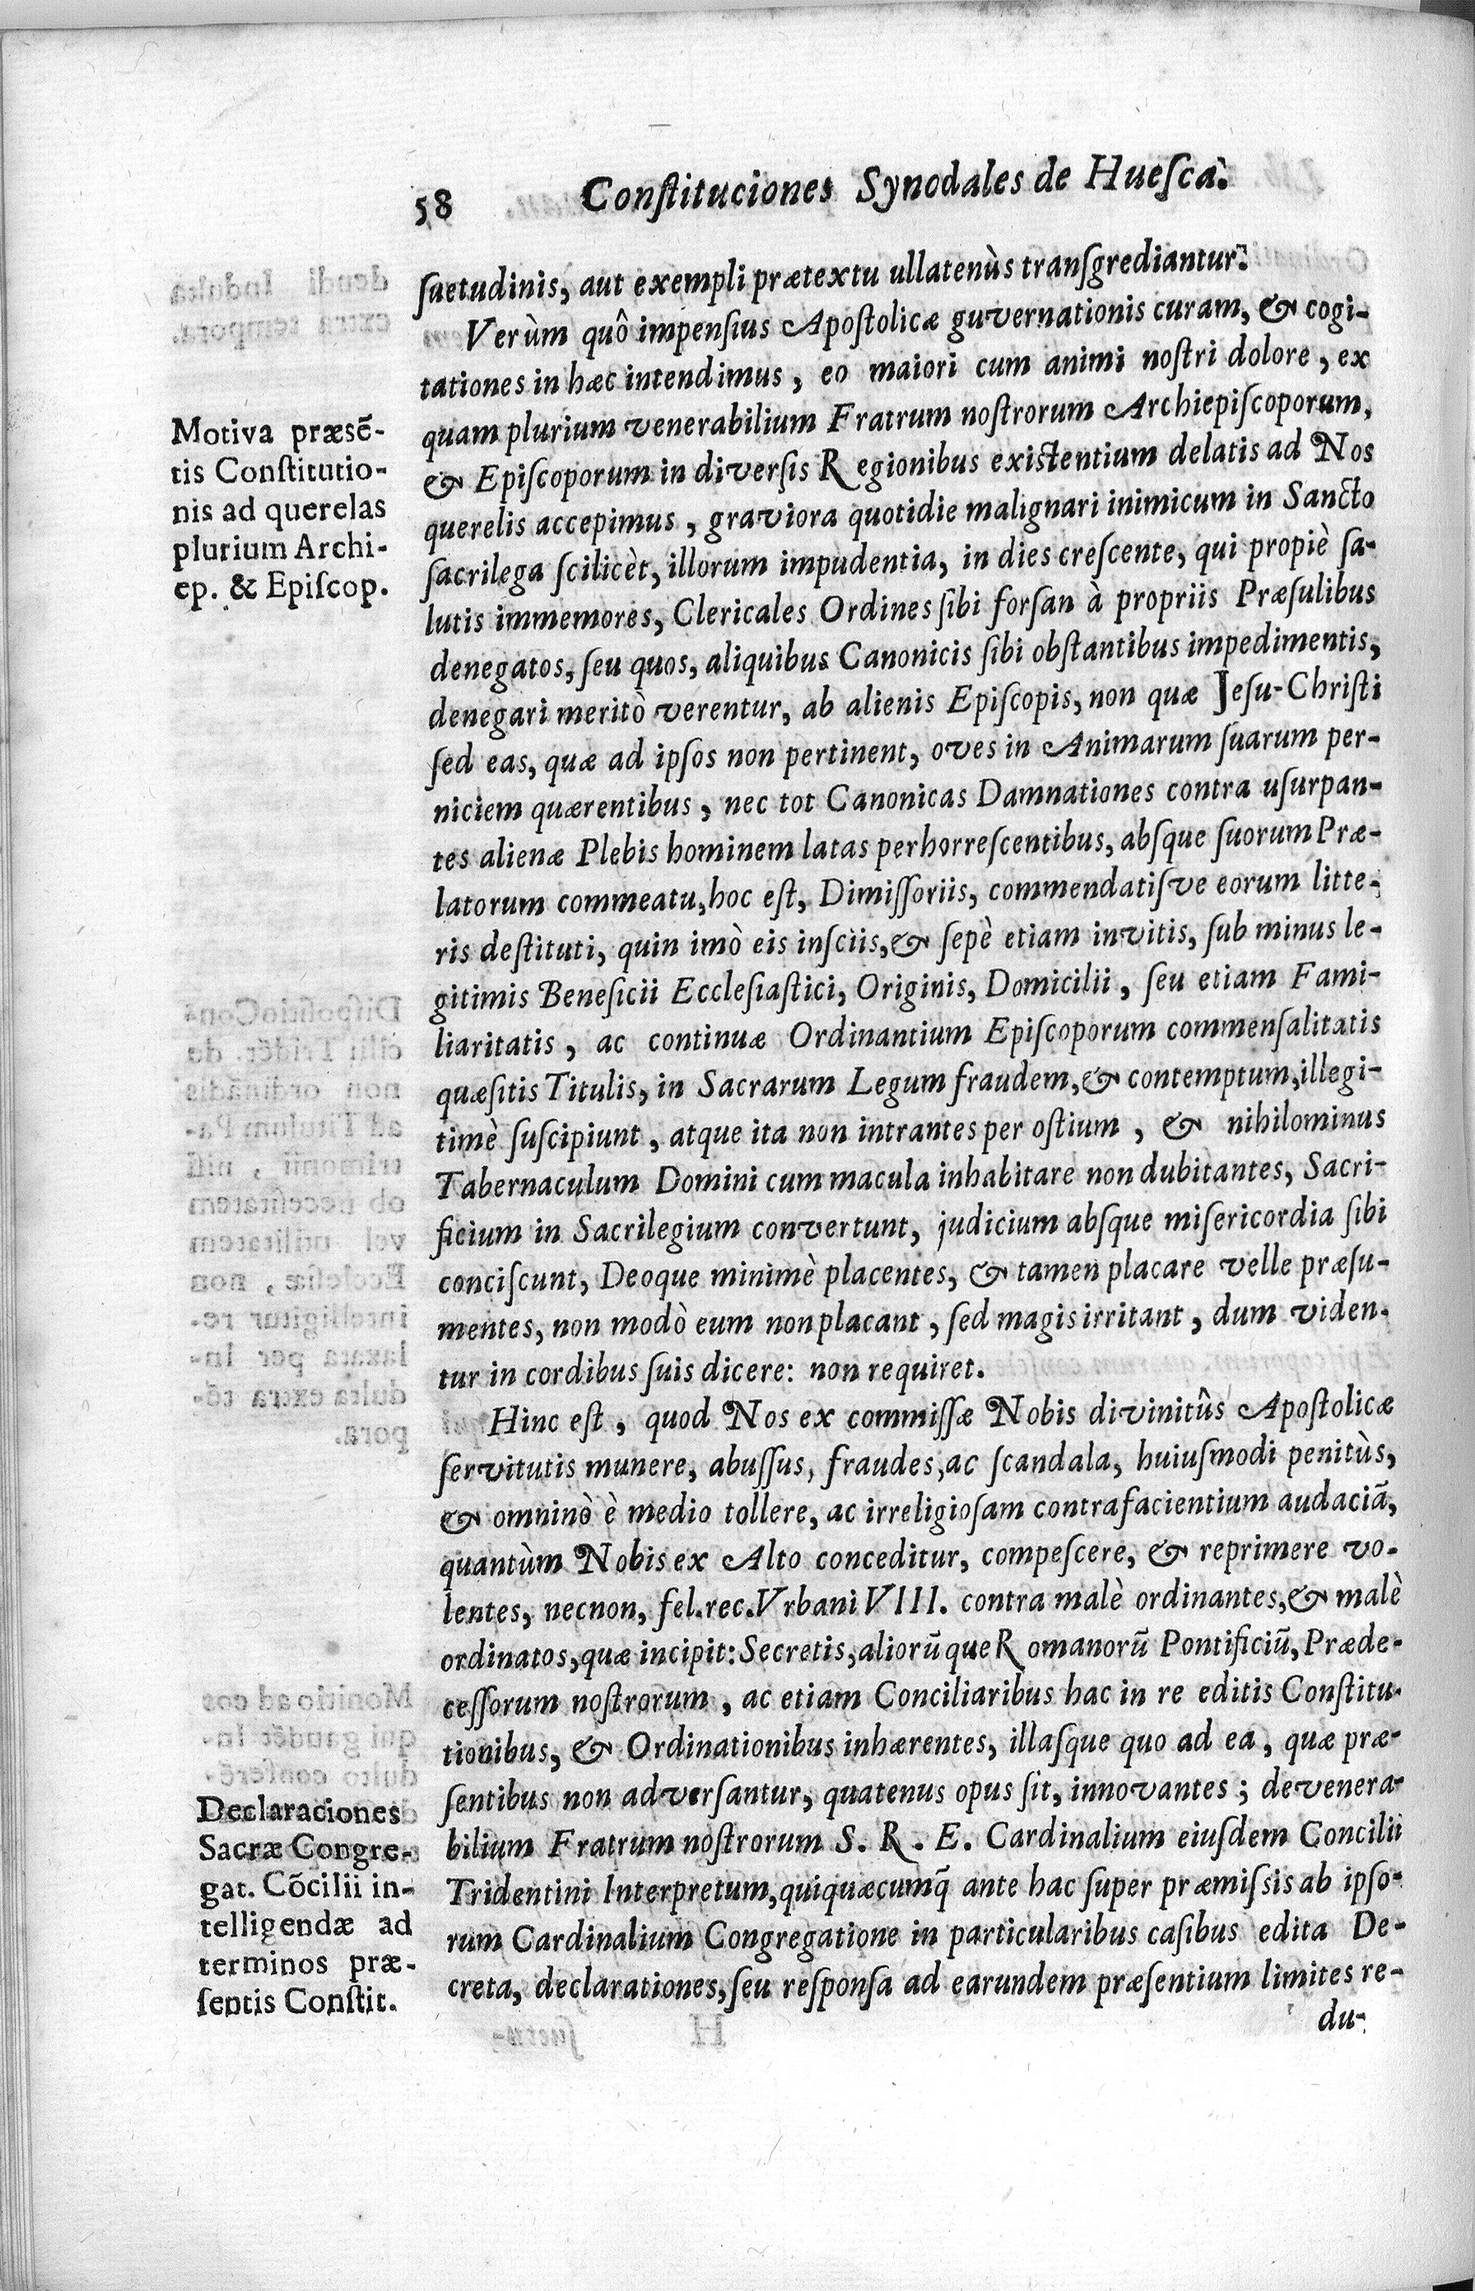 58 Conſtituciones Synodales de Hueſca.
ſuetudinis, aut exempli prætextu ullatenùs tranſgrediantur.
Verùm quô impenſius Apoſtolicæ guvernationis curam, & cogi-
tationes in hæc intendimus, eo maiori cum animi noſtri dolore, ex
quam plurium venerabilium Fratrum noſtrorum Archiepiſcoporum,
& Epiſcoporum in diverſis Regionibus exiſtentium delatis ad Nos
querelis accepimus, graviora quotidie malignari inimicum in Sancto
ſacrilega ſcilicèt, illorum impudentia, in dies creſcente, qui propiè ſa-
lutis immemores, Clericales Ordines ſibi forſan à propriis Præſulibus
denegatos, ſeu quos, aliquibus Canonicis ſibi obſtantibus impedimentis,
denegari meritò verentur, ab alienis Epiſcopis, non quæ Jeſu-Chriſti
ſed eas, quæ ad ipſos non pertinent, oves in Animarum ſuarum per-
niciem quærentibus, nec tot Canonicas Damnationes contra uſurpan-
tes alienæ Plebis hominem latas perhorreſcentibus, abſque ſuorum Præ-
latorum commeatu, hoc eſt, Dimiſſoriis, commendatiſve eorum litte-
ris deſtituti, quin imò eis inſciis, & ſepè etiam invitis, ſub minus le-
gitimis Beneficii Eccleſiaſtici, Originis, Domicilii, ſeu etiam Fami-
liaritatis, ac continuæ Ordinantium Epiſcoporum commenſalitatis
quæſitis Titulis, in Sacrarum Legum fraudem, & contemptum, illegi-
timè ſuſcipiunt, atque ita non intrantes per oſtium, & nihilominus
Tabernaculum Domini cum macula inhabitare non dubitantes, Sacri-
ficium in Sacrilegium convertunt, judicium abſque miſericordia ſibi
conciſcunt, Deoque minimè placentes, & tamen placare velle præſu-
mentes, non modò eum non placant, ſed magis irritant, dum viden-
tur in cordibus ſuis dicere: non requiret.
Hinc eſt, quod Nos ex commiſſæ Nobis divinitûs Apoſtolicæ
ſervitutis munere, abuſſus, fraudes, ac ſcandala, huiuſmodi penitùs,
& omninò è medio tollere, ac irreligioſam contrafacientium audaciã,
quantùm Nobis ex Alto conceditur, compeſcere, & reprimere vo-
lentes, necnon, fel. rec. Vrbani VIII. contra malè ordinantes, & malè
ordinatos, quæ incipit: Secretis, aliorũque Romanorũ Pontificiũ, Præde-
ceſſorum noſtrorum, ac etiam Conciliaribus hac in re editis Conſtitu-
tionibus, & Ordinationibus inhærentes, illaſque quo ad ea, quæ præ-
ſentibus non adverſantur, quatenus opus ſit, innovantes; de venera-
bilium Fratrum noſtrorum S. R. E. Cardinalium eiuſdem Concilii
Tridentini Interpretum, quiquæcumq̃ ante hac ſuper præmiſſis ab ipſo-
rum Cardinalium Congregatione in particularibus caſibus edita De-
creta, declarationes, ſeu reſponſa ad earundem præſentium limites re-
du-
Motiva præsẽ-
tis Conſtitutio-
nis ad querelas
plurium Archi-
ep. & Epiſcop.
Declaraciones
Sacræ Congre-
gat. Cõcilii in-
telligendæ ad
terminos præ-
ſentis Conſtit.